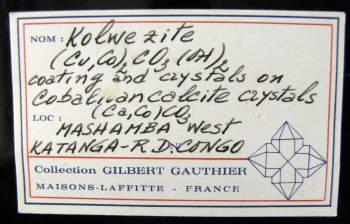 NOM : Kolwezite
(Cu,Co)2 CO3 (OH)2
coating and crystals on
Cobaltoan calcite crystals
(Ca,Co)CO3
LOC : MASHAMBA West
KATANGA - R.D. CONGO
Collection GILBERT GAUTHIER
MAISONS-LAFFITTE - FRANCE